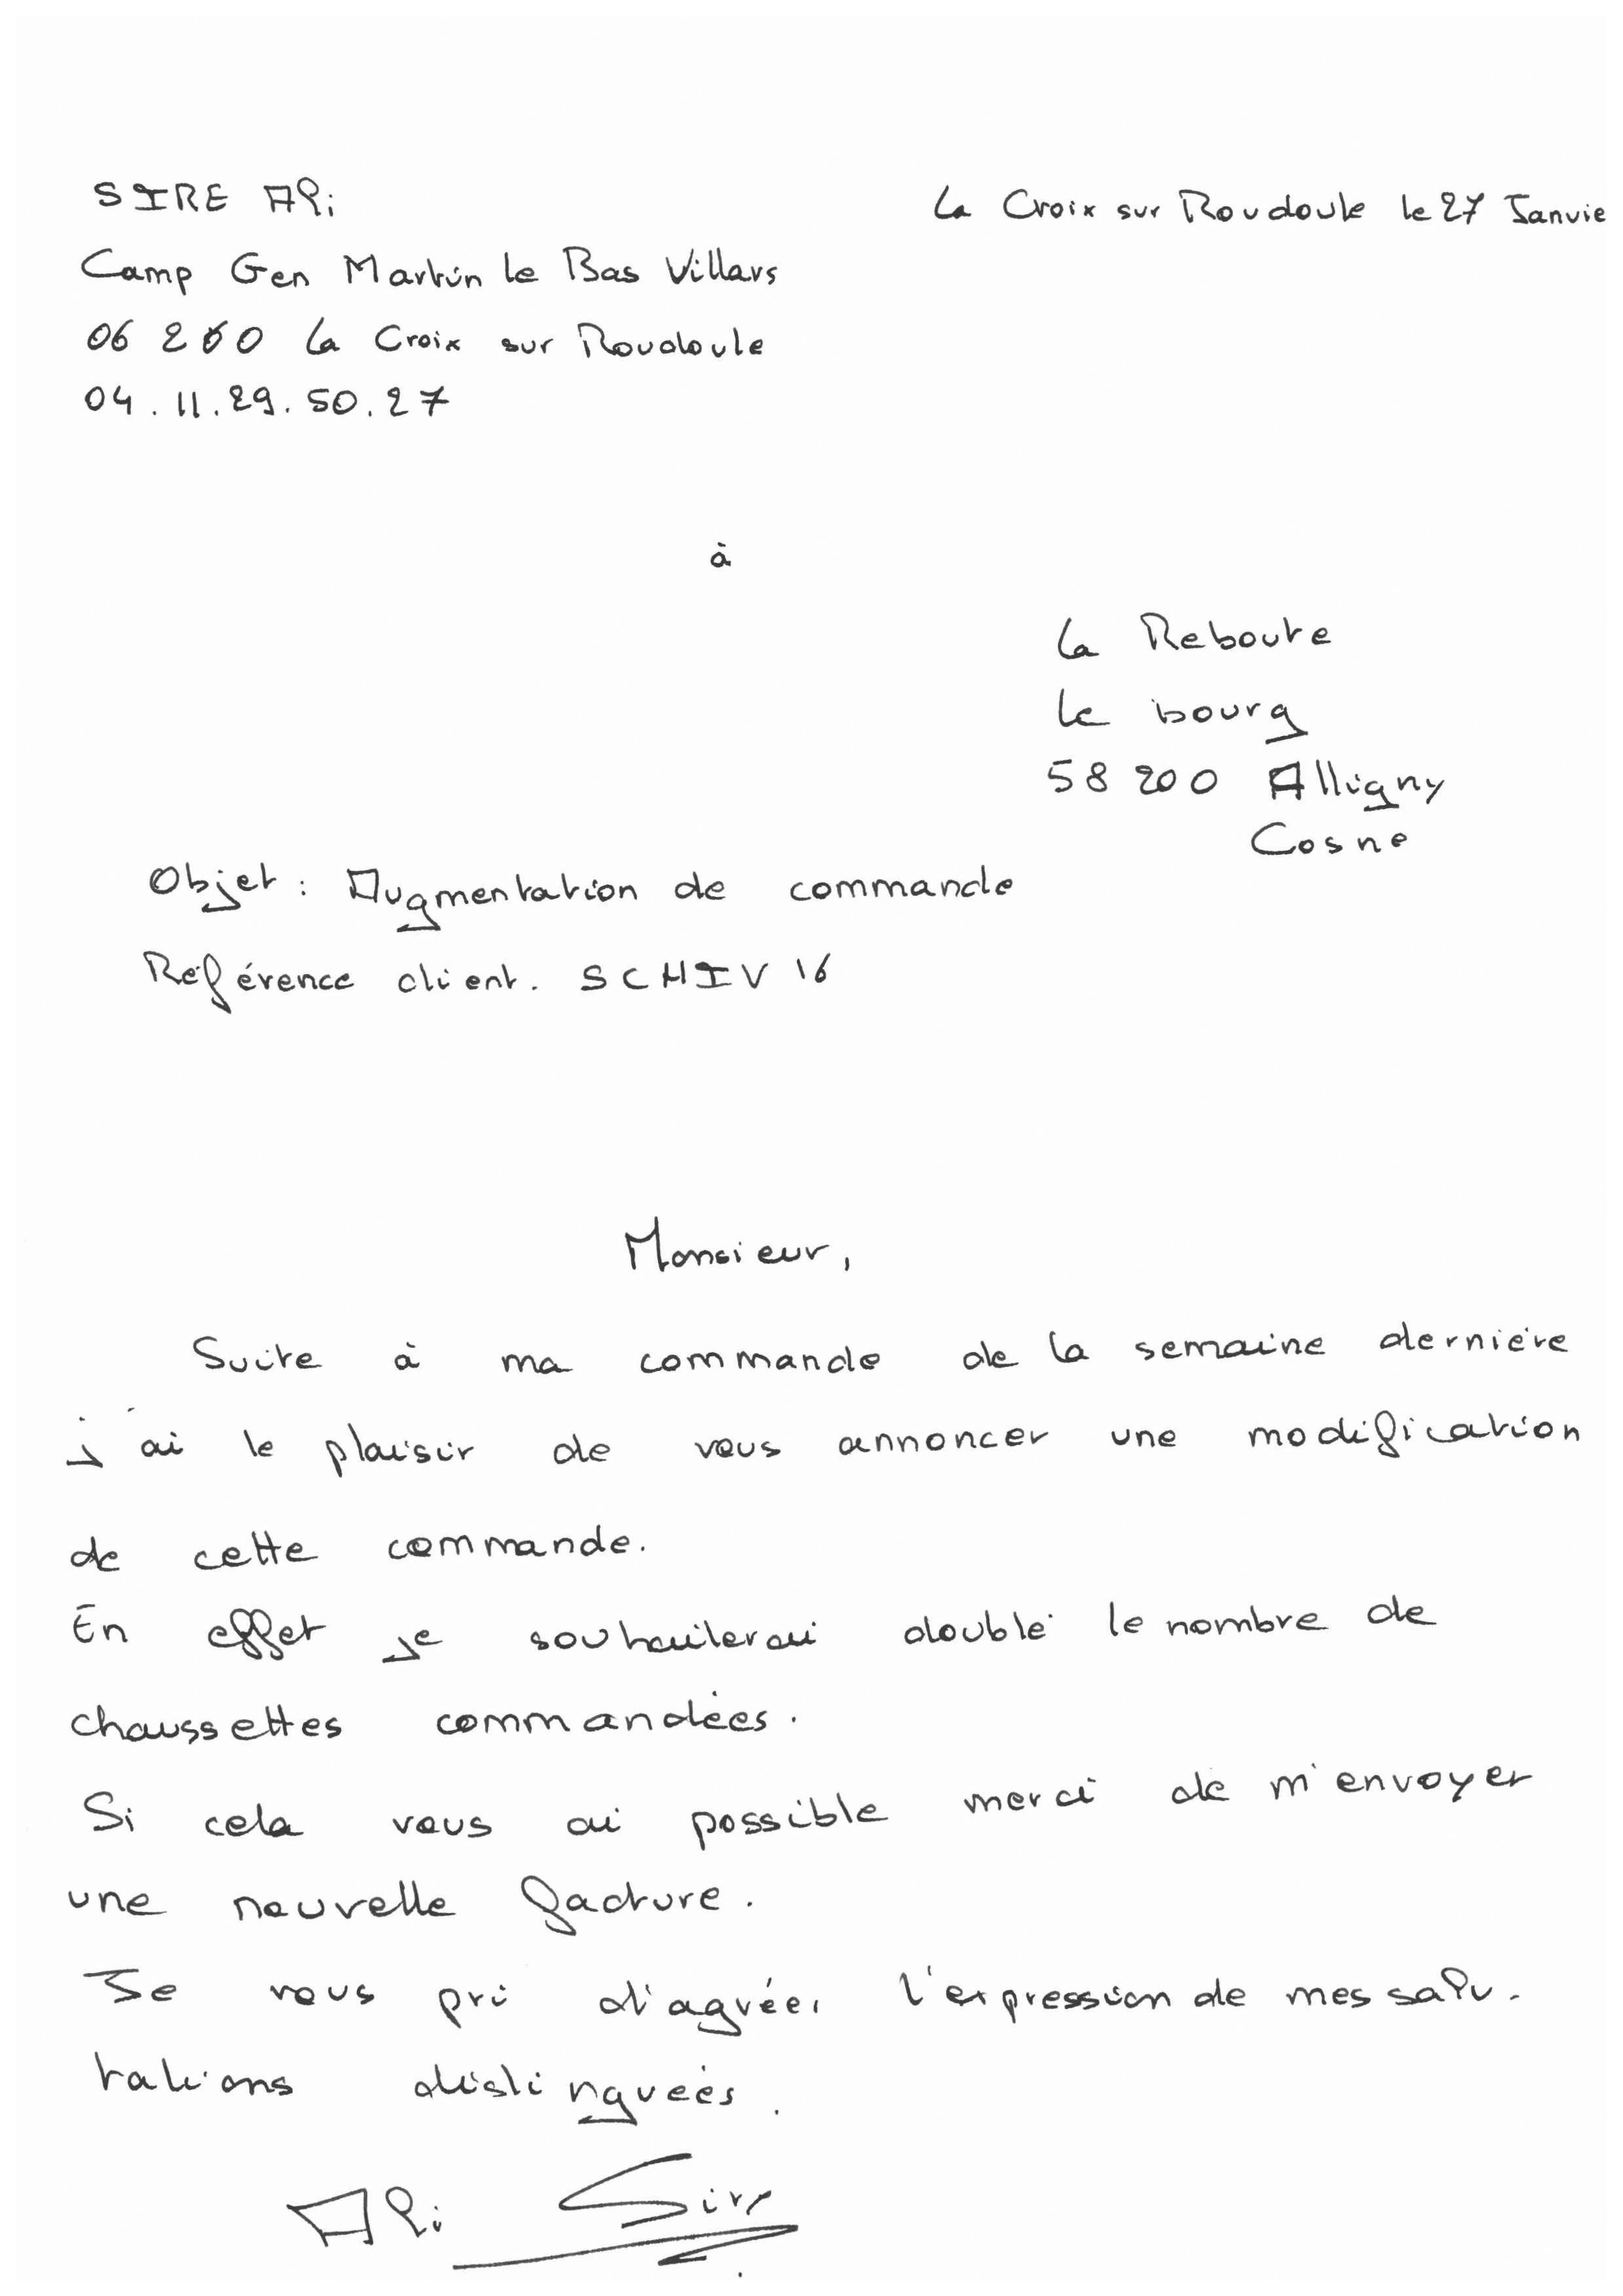 SIRE Ali
La Croix sur Roudoule le 27 Janvie
Camp Gen Martin le Bas Villars
06 260 La Croix sur Roudoule
04.11.29.50.27
à
La Reboute
le bourg
58 200 Alligny
Cosne
Objet : Augmentation de commande
Référence client. SCHIV 16
Monsieur,
Suite à ma commande de la semaine dernière
j'ai le plaisir de vous annoncer une modification
de cette commande.
En effet je souhaiterai doublé le nombre de
chaussettes commandées.
Si cela vous ai possible merci de m'envoyer
une nouvelle facture.
Je vous pri d'agréer l'expression de mes salu-
tations distinguées.
Ali Sire